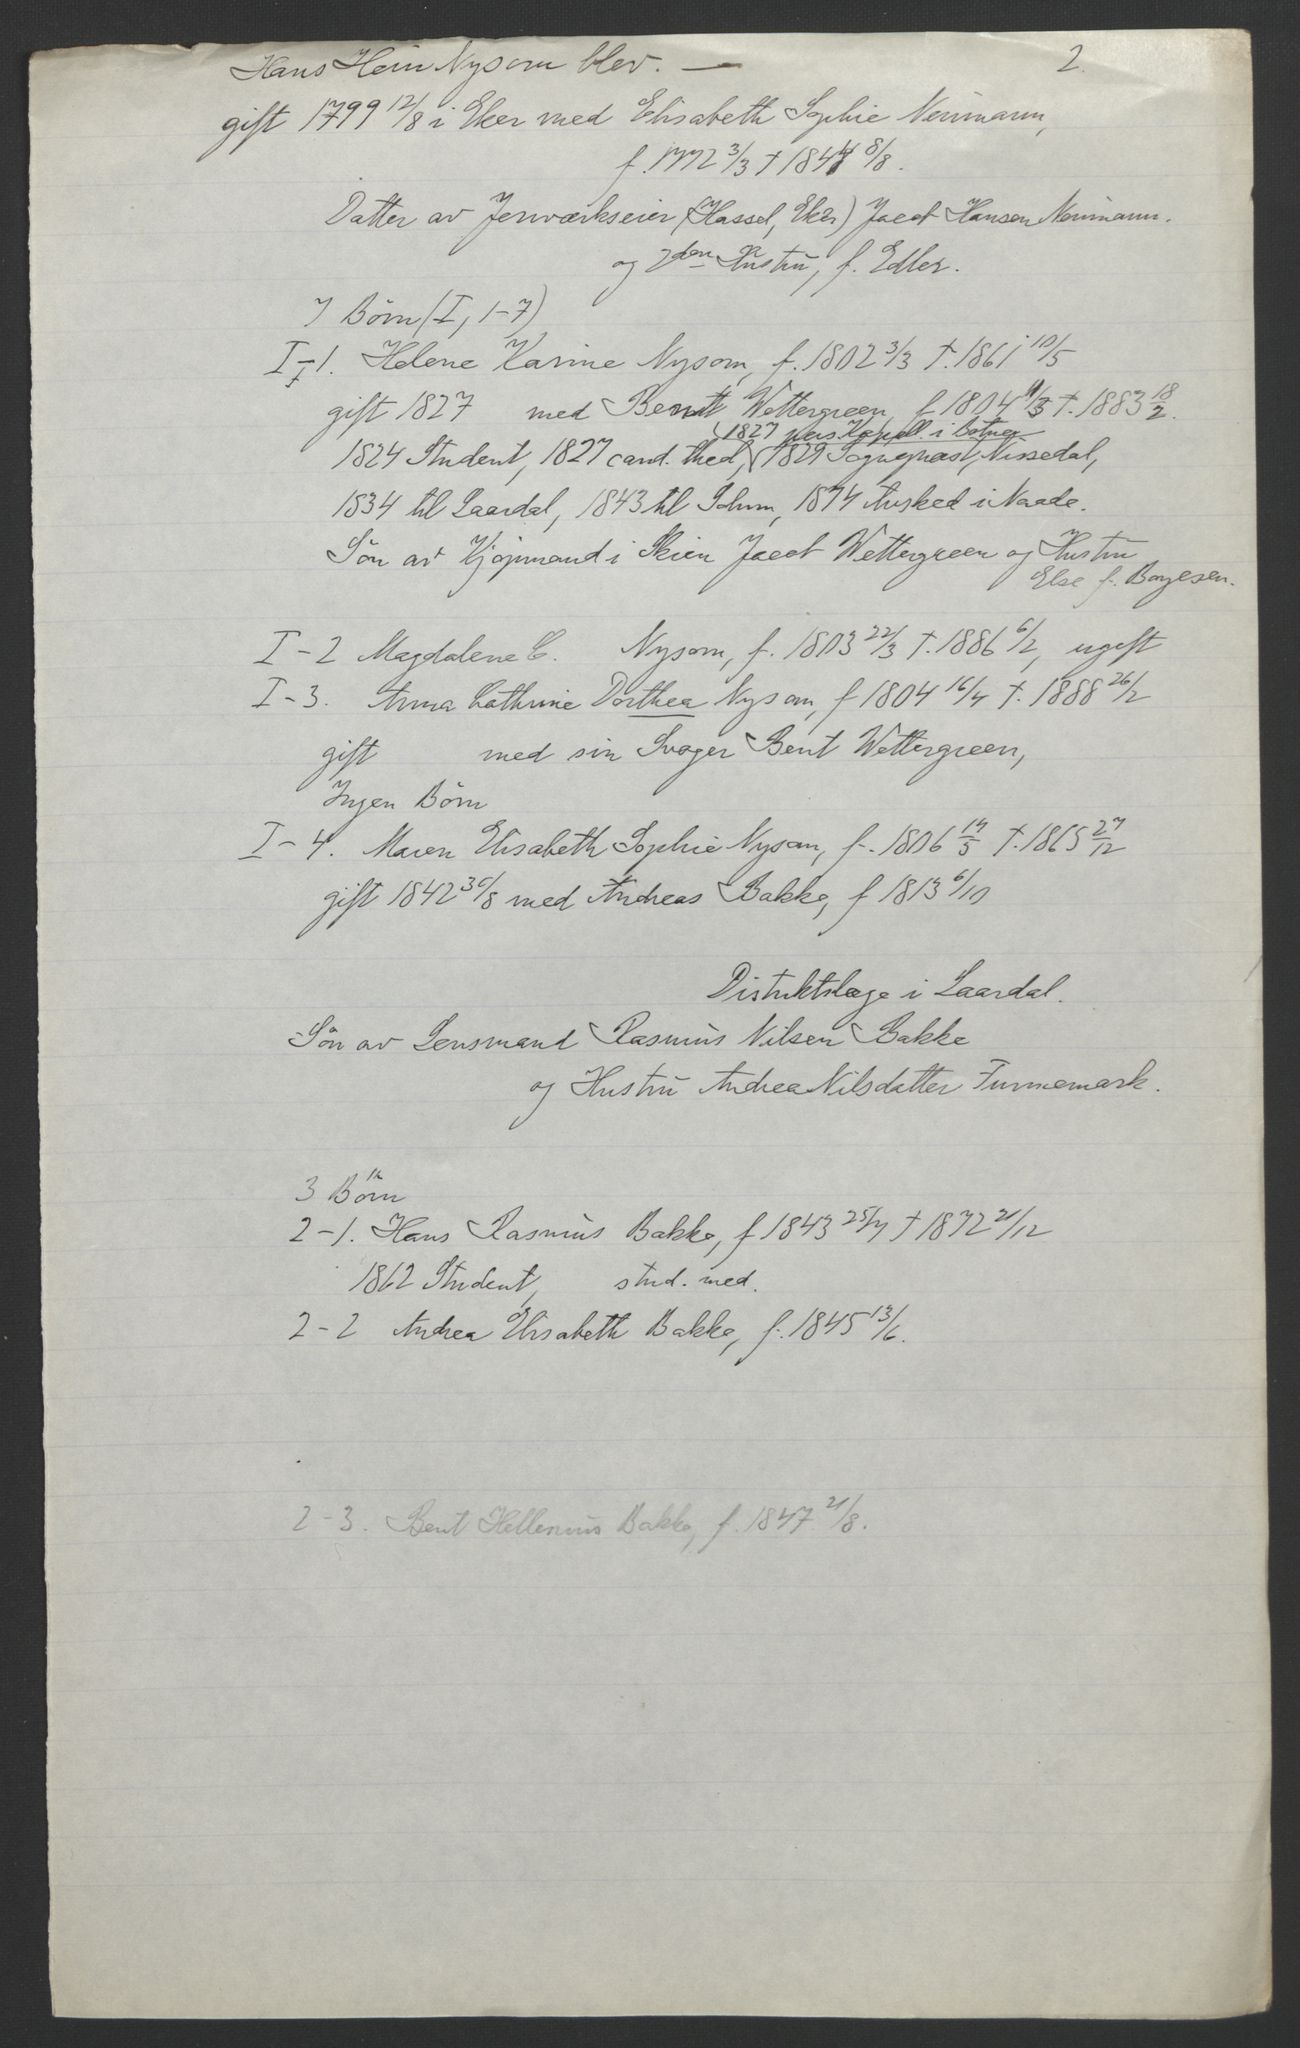 Hans Hein Nysom blev. — 2.
gift 1799 12/8 i Eker med Elisabeth Sophie Neumann,
f. 1772 3/3 † 1844 8/8.
Datter av Jernværkseier (Hassel, Eker) Jacob Hansen Neumann.
og 2den Hustru, f. Edler.
7 Börn (I, 1-7)
I-1. Helene Karine Nysom, f. 1802 3/3 †. 1861 10/5
gift 1827 med Bent Wettergreen, f. 1804 †. 1883 18/2.
(1827 pers. Kapell. i Botne)
1824 Student, 1827 cand. theol, 1829 Sogneprest, Nissedal,
1834 til Laardal, 1843 til Solum, 1874 Avsked i Naade.
Sön av Kjöpmand i Skien Jacob Wettergreen og Hustru
Else f. Boyesen.
I-2 Magdalene C. Nysom, f. 1803 22/3 †. 1886 6/2, ugift
I-3. Anna Cathrine Dorthea Nysom, f 1804 16/4 †. 1888 26/2
gift med sin Svoger Bent Wettergreen,
Ingen Börn
I-4. Maren Elisabeth Sophie Nysom, f. 1806 14/5 †. 1865 27/12
gift 1842 30/8 med Andreas Bakke, f 1813 6/10
Distriktslæge i Laardal.
Sön av Lensmand Rasmus Nilsen Bakke
og Hustru Andrea Nilsdatter Furnemark.
3 Börn
2-1. Hans Rasmus Bakke, f 1843 25/7 † 1872 21/12
1862 Student, stud. med.
2-2 Andrea Elisabeth Bakke, f. 1845 13/6.
2-3. Bent Hellenius Bakke, f. 1847 21/8.